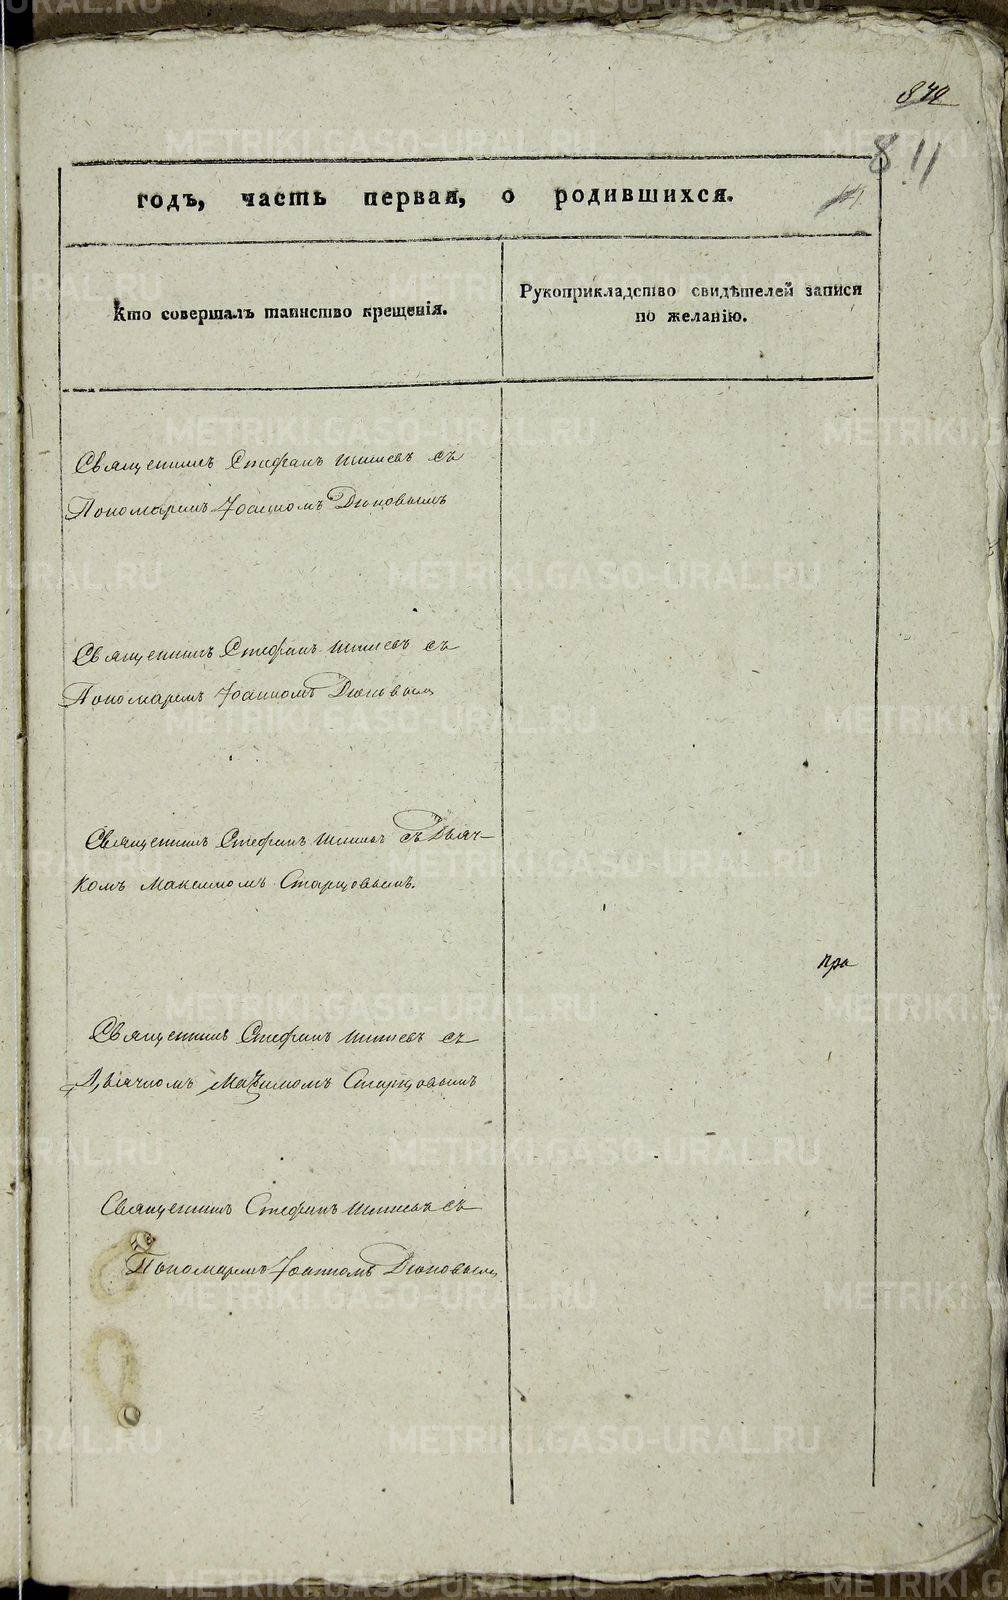 811
годъ, часть первая, о родившихся.
Кто совершалъ таинство крещенія.
Рукоприкладство свидѣтелей записи
по желанію.
Священникъ Стефанъ Шишевъ съ
Пономаремъ Іоанномъ Дюковымъ
Священникъ Стефанъ Шишевъ съ
Пономаремъ Іоанномъ Дюковымъ
Священникъ Стефанъ Шишевъ съ Дьяч-
комъ Максимомъ Старцовымъ.
пра
Священникъ Стефанъ Шишевъ съ
Дьячкомъ Максимомъ Старцовымъ
Священникъ Стефанъ Шишевъ съ
Пономаремъ Іоанномъ Дюковымъ
METRIKI.GASO-URAL.RU